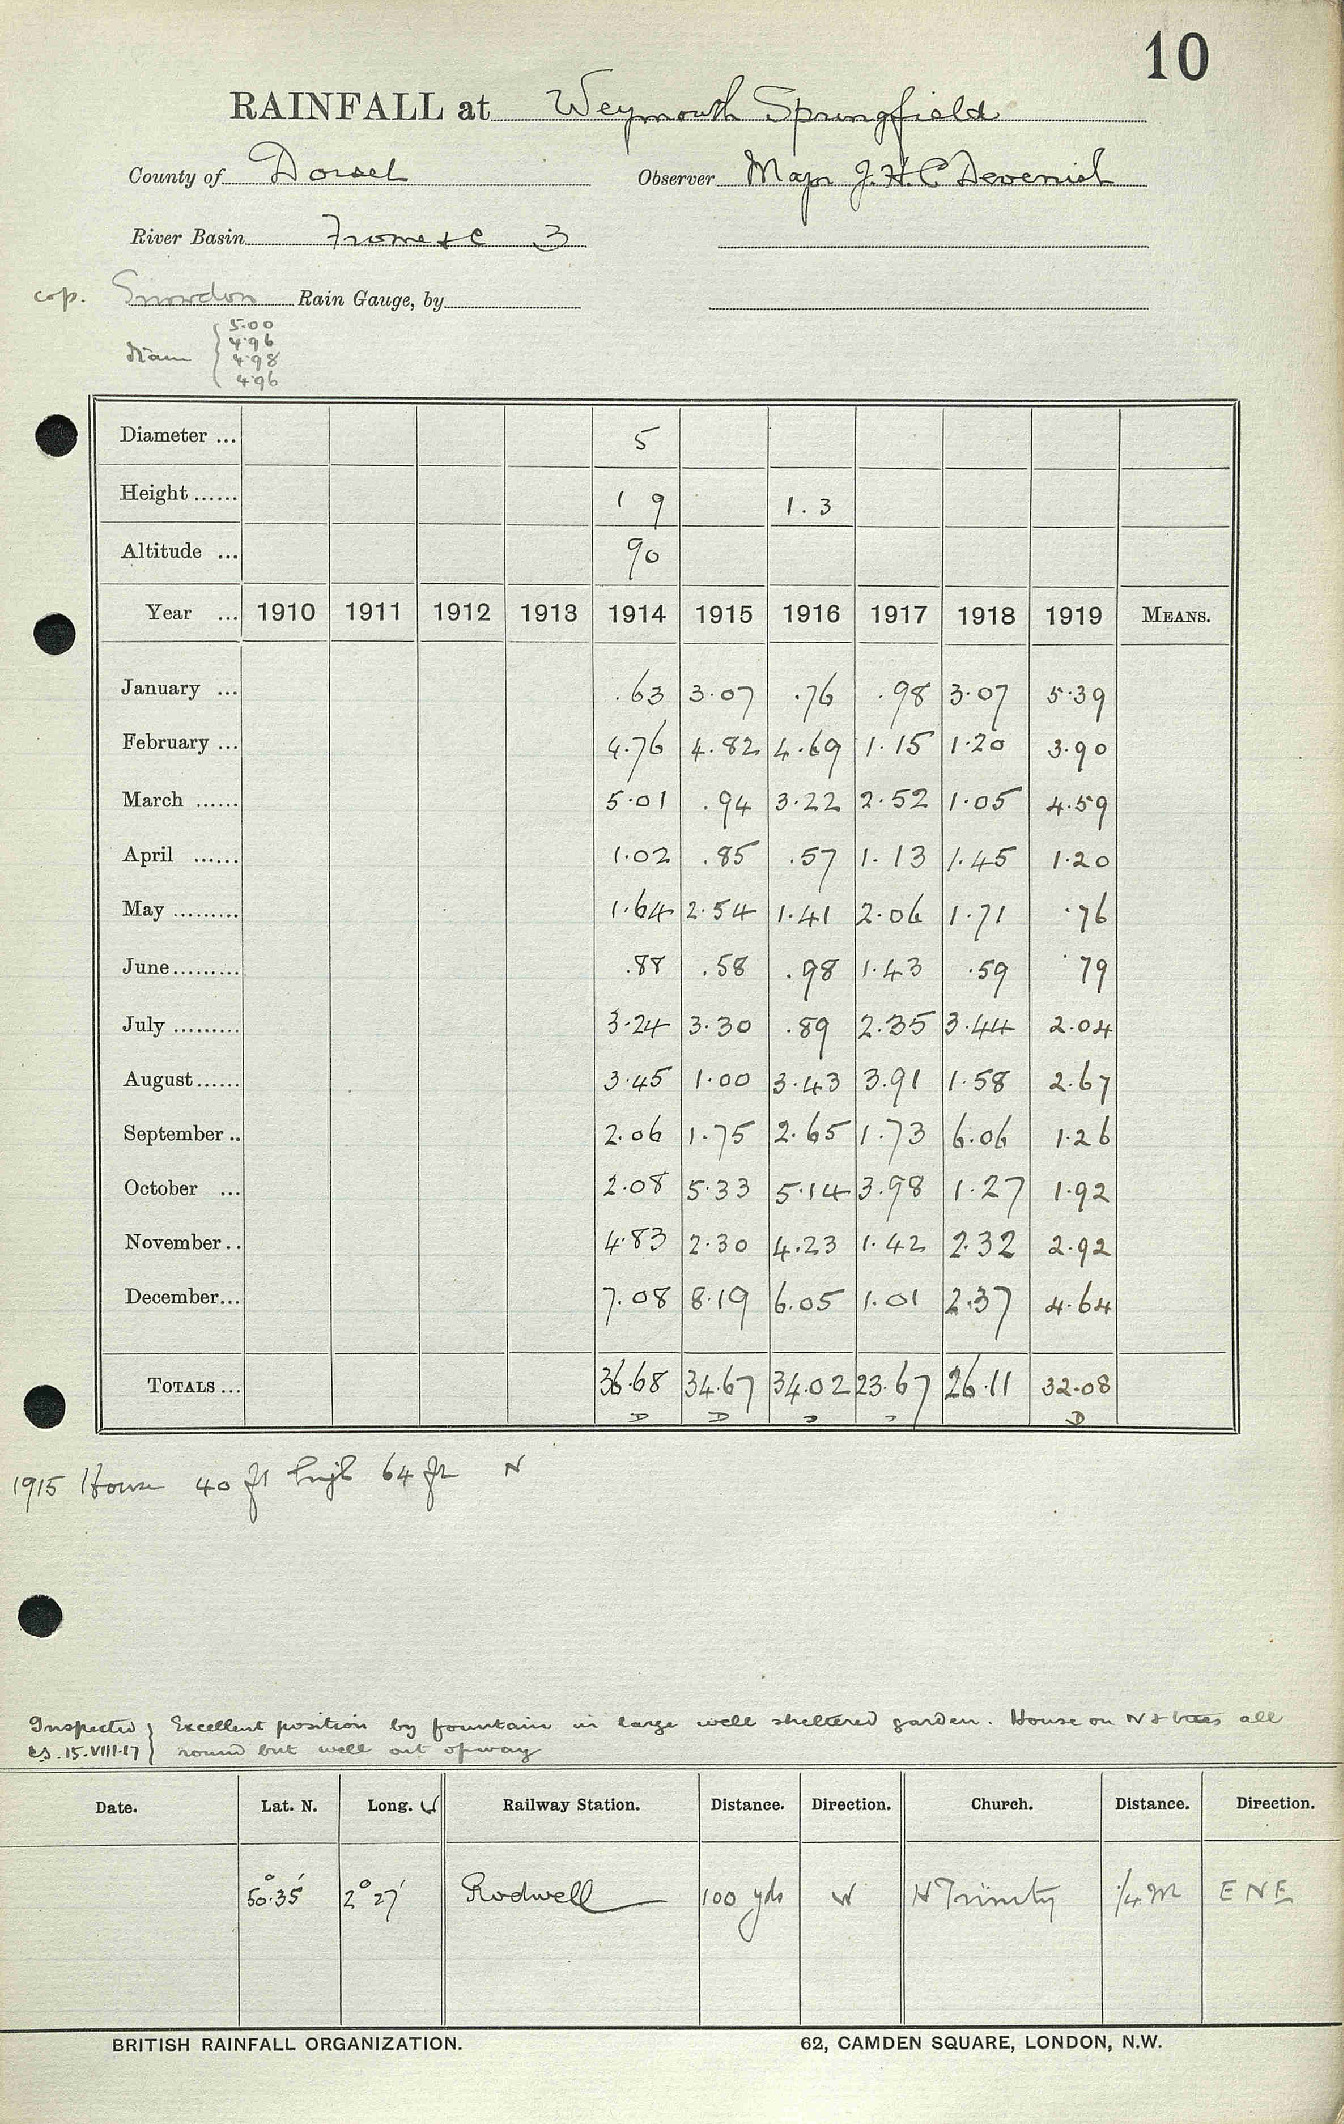 10
RAINFALL at Weymouth Springfield
County of Dorset Observer Major J.H.C Devenish
River Basin Frome &c 3
cop. Snowdon Rain Gauge, by
Diam { 5.00
4.96
4.98
4.96
Diameter ... 5
Height ...... 1 9 1.3
Altitude ... 90
Year ... 1910 1911 1912 1913 1914 1915 1916 1917 1918 1919 MEANS.
January ... .63 3.07 .76 .98 3.07 5.39
February ... 4.76 4.82 4.69 1.15 1.20 3.90
March ...... 5.01 .94 3.22 2.52 1.05 4.59
April ...... 1.02 .85 .57 1.13 1.45 1.20
May ......... 1.64 2.54 1.41 2.06 1.71 .76
June ......... .88 .58 .98 1.43 .59 .79
July ......... 3.24 3.30 .89 2.35 3.44 2.04
August ...... 3.45 1.00 3.43 3.91 1.58 2.67
September .. 2.06 1.75 2.65 1.73 6.06 1.26
October ... 2.08 5.33 5.14 3.98 1.27 1.92
November .. 4.83 2.30 4.23 1.42 2.32 2.92
December ... 7.08 8.19 6.05 1.01 2.37 4.64
TOTALS ... 36.68 34.67 34.02 23.67 26.11 32.08
D D D D D
1915 House 40 ft high 64 ft N
Inspected } Excellent position by fountain in large well sheltered garden. House on N & trees all
15.VIII.17 } round but well out of way
Date. Lat. N. Long. W Railway Station. Distance. Direction. Church. Distance. Direction.
50° 35' 2° 27' Rodwell 100 yds W H Trinity 1/4 M E N E
BRITISH RAINFALL ORGANIZATION. 62, CAMDEN SQUARE, LONDON, N.W.